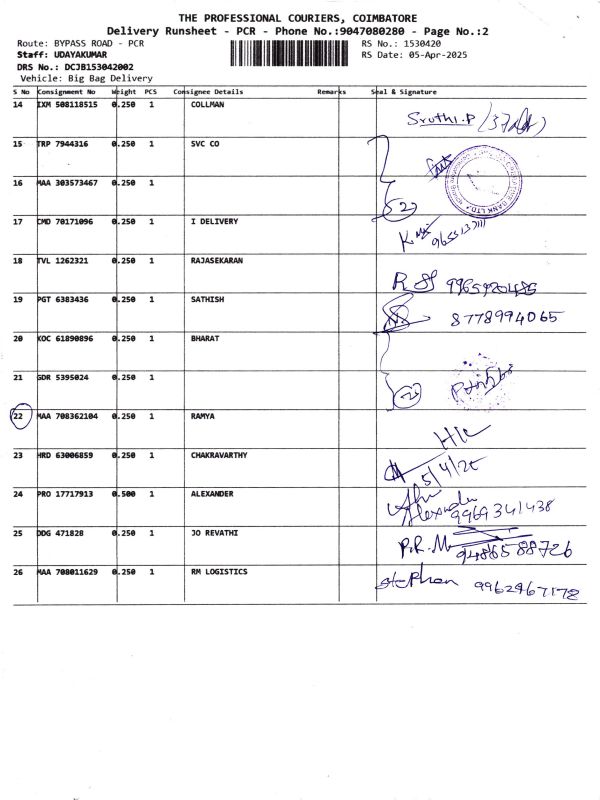 THE PROFESSIONAL COURIERS, COIMBATORE
Delivery Runsheet - PCR - Phone No.:9047080280 - Page No.:2
Route: BYPASS ROAD - PCR RS No.: 1530420
Staff: UDAYAKUMAR RS Date: 05-Apr-2025
DRS No.: DCJB153042002
Vehicle: Big Bag Delivery
S No Consignment No Weight PCS Consignee Details Remarks Seal & Signature
14 IXM 508118515 0.250 1 COLLMAN
Sruthi.P
15 TRP 7944316 0.250 1 SVC CO
16 MAA 303573467 0.250 1
22
17 CMD 70171096 0.250 1 I DELIVERY
18 TVL 1262321 0.250 1 RAJASEKARAN
19 PGT 6383436 0.250 1 SATHISH
8778994065
20 KOC 61890896 0.250 1 BHARAT
21 GDR 5395024 0.250 1
22 MAA 708362104 0.250 1 RAMYA
23 HRD 63006859 0.250 1 CHAKRAVARTHY
5/4/25
24 PRO 17717913 0.500 1 ALEXANDER
Alexander
9969341438
25 DDG 471828 0.250 1 JO REVATHI
P.R.M 9486588726
26 MAA 708011629 0.250 1 RM LOGISTICS
Stephan 9962967178